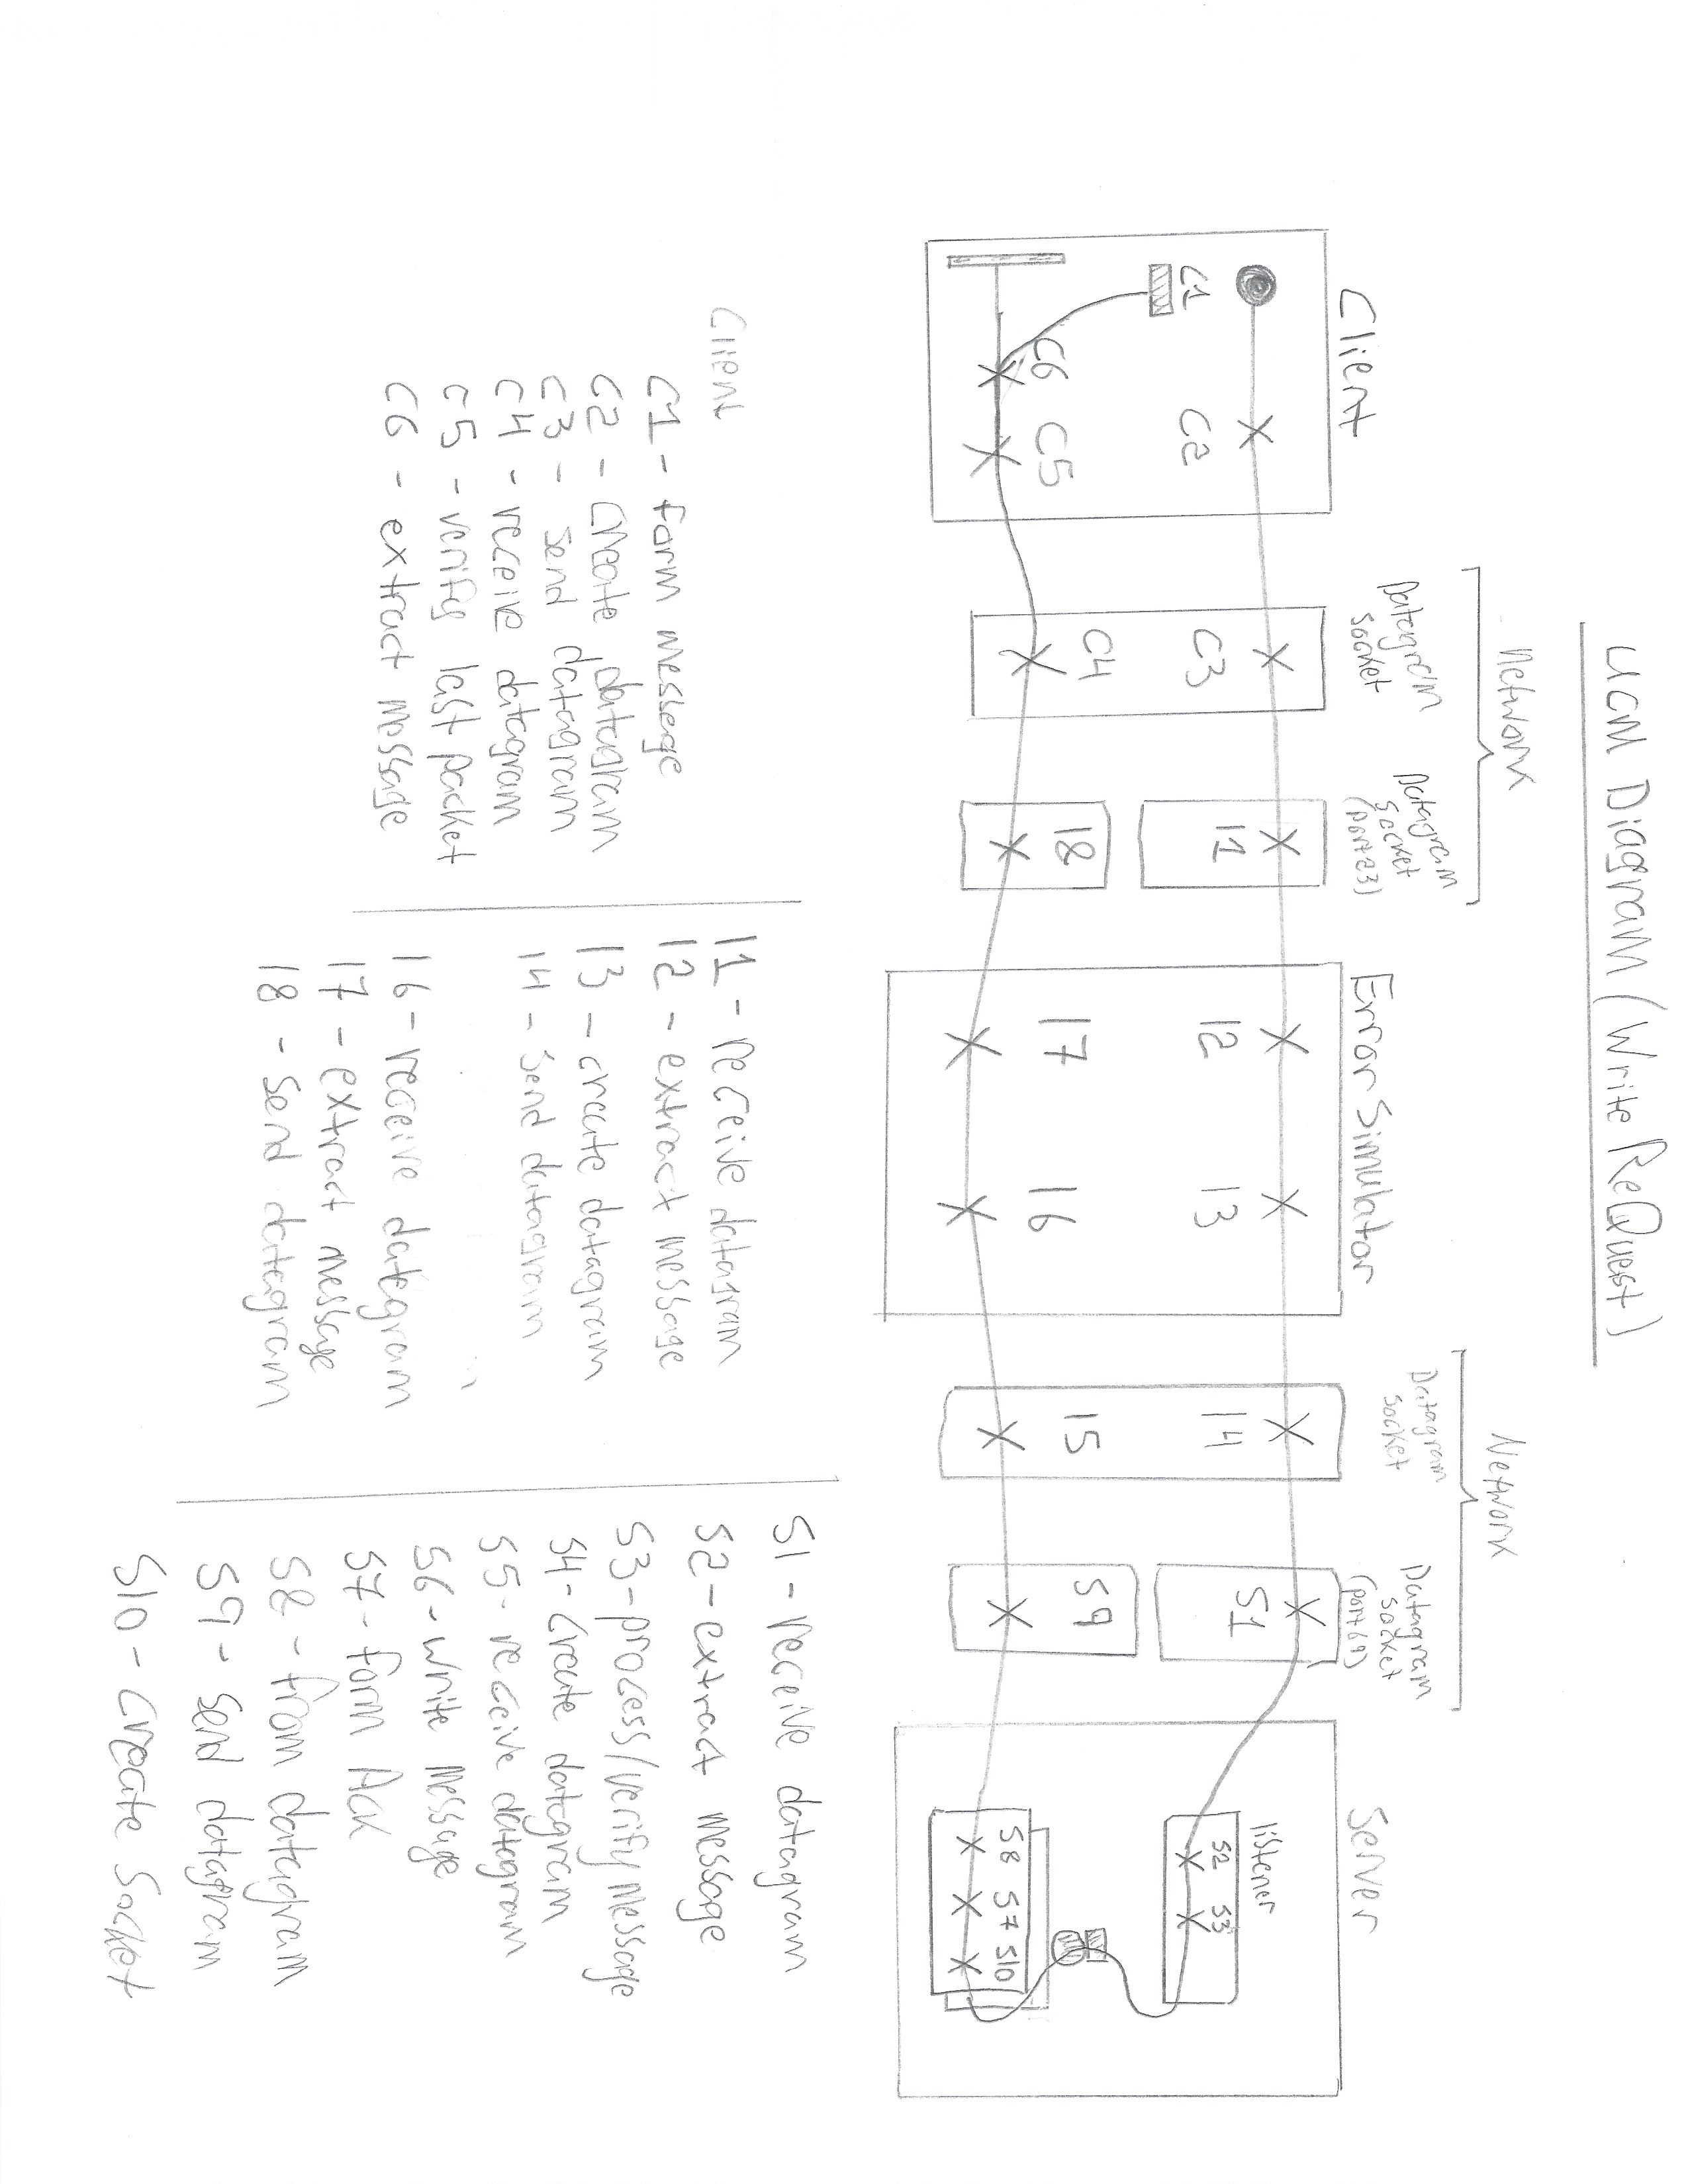 UCM Diagram (Write ReQuest)
Network
Network
Datagram
Socket
Datagram
Socket
(port 23)
Datagram
Socket
Datagram
Socket
(port 69)
Client
Error Simulator
Server
listener
C1
C2
C3
I1
I2
I3
I4
S1
S2 S3
C6 C5
C4
I8
I7
I6
I5
S9
S8 S7 S10
Client
C1 - form message
C2 - create datagram
C3 - Send datagram
C4 - receive datagram
C5 - verify last packet
C6 - extract message
I1 - receive datagram
I2 - extract message
I3 - create datagram
I4 - Send datagram
I6 - receive datagram
I7 - extract message
I8 - Send datagram
S1 - receive datagram
S2 - extract message
S3 - process/verify message
S4 - Create datagram
S5 - receive datagram
S6 - write message
S7 - form Ack
S8 - from datagram
S9 - Send datagram
S10 - Create Socket